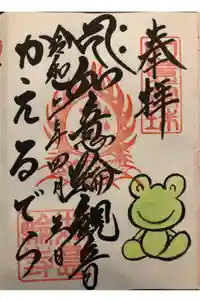 奉拝
如意輪観音
令和二年四月日
かえるでら